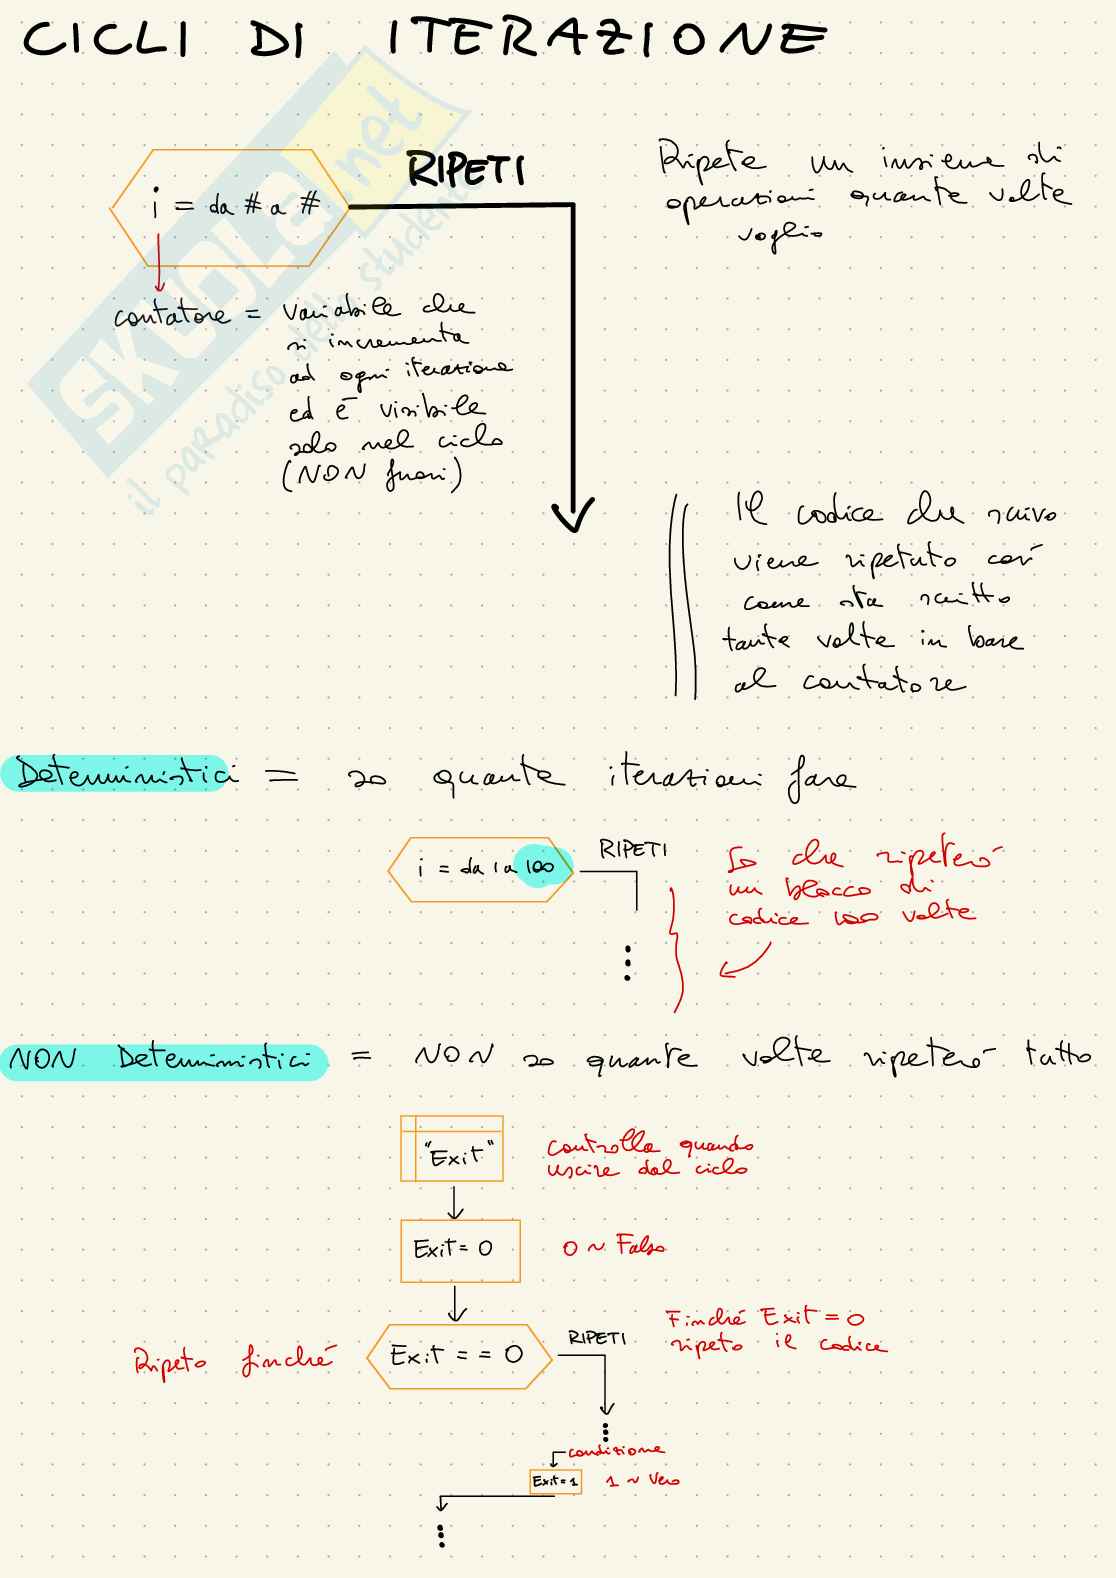 CICLI DI ITERAZIONE
i = da # a #
RIPETI
Ripete un insieme di
operazioni quante volte
voglio
contatore = variabile che
si incrementa
ad ogni iterazione
ed è visibile
solo nel ciclo
(NON fuori)
SKUOLA.net
il paradiso dello studente
Il codice che scrivo
viene ripetuto così
come sta scritto
tante volte in base
al contatore
Deterministici = so quante iterazioni fare
i = da 1 a 100
RIPETI
So che ripeterò
un blocco di
codice 100 volte
NON Deterministici = NON so quante volte ripeterò tutto
"Exit"
controlla quando
uscire dal ciclo
Exit = 0
0 ~ Falso
Ripeto finché
Exit == 0
RIPETI
Finché Exit = 0
ripeto il codice
condizione
Exit = 1
1 ~ Vero